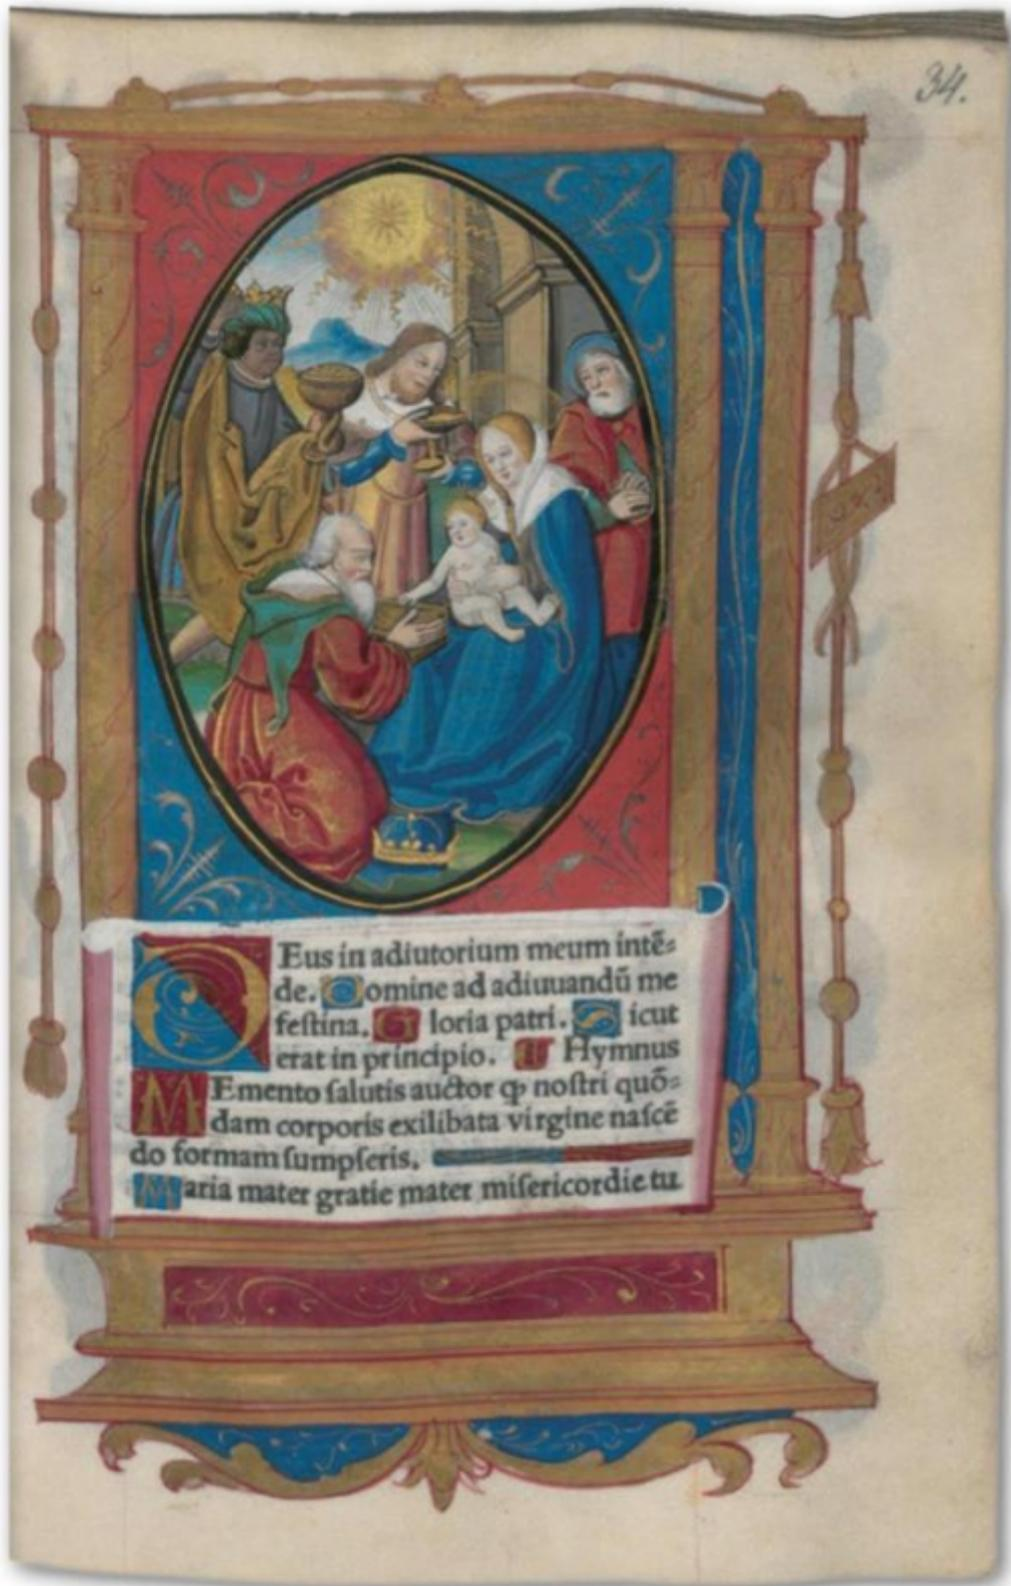 34.
DEus in adiutorium meum intē=
de. Domine ad adiuuandū me
feſtina. Gloria patri. Sicut
erat in principio. Hymnus
MEmento ſalutis auctor ꝙ noſtri quō=
dam corporis exilibata virgine naſcē
do formam ſumpſeris.
Maria mater gratie mater miſericordie tu